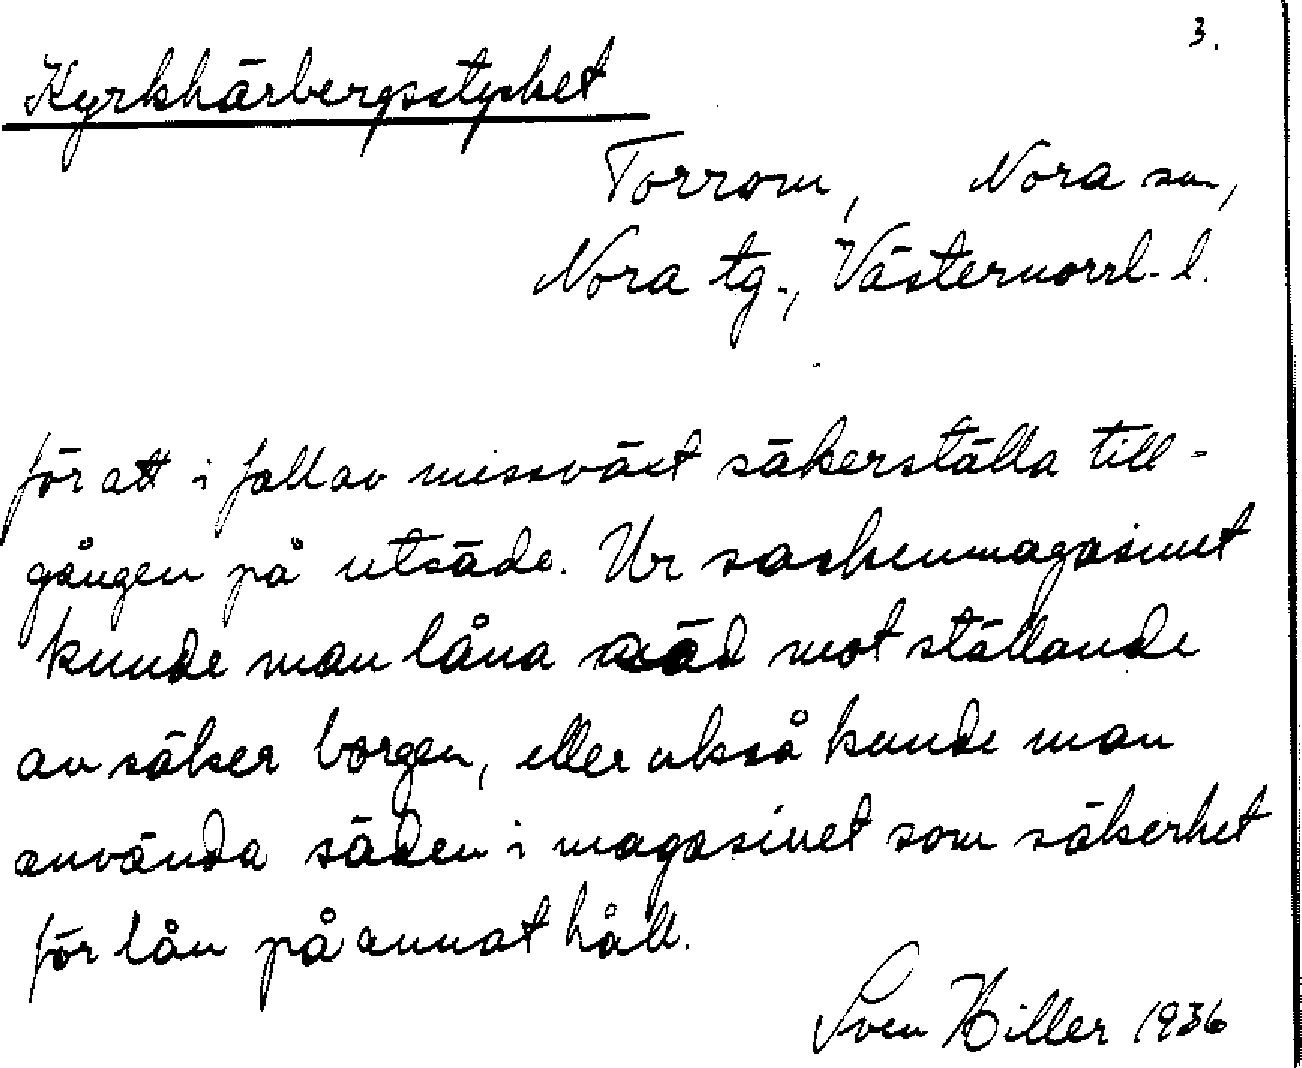 3.
Kyrkhärbergsstycket
Torrom, Nora sn,
Nora tg., Västernorrl. l.
för att i fall av missväxt säkerställa till-
gången på utsäde. Ur sockenmagasinet
kunde man låna säd mot ställande
av säker borgen, eller också kunde man
använda säden i magasinet som säkerhet
för lån på annat håll.
Sven Hiller 1936